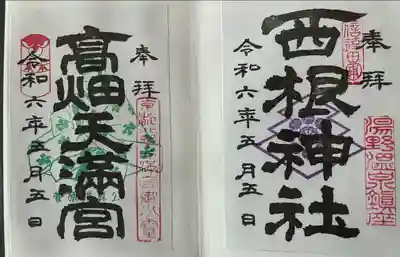 奉拝
西根神社
令和六年五月五日
湯野温泉鎮座
奉拝
高畑天満宮
令和六年五月五日